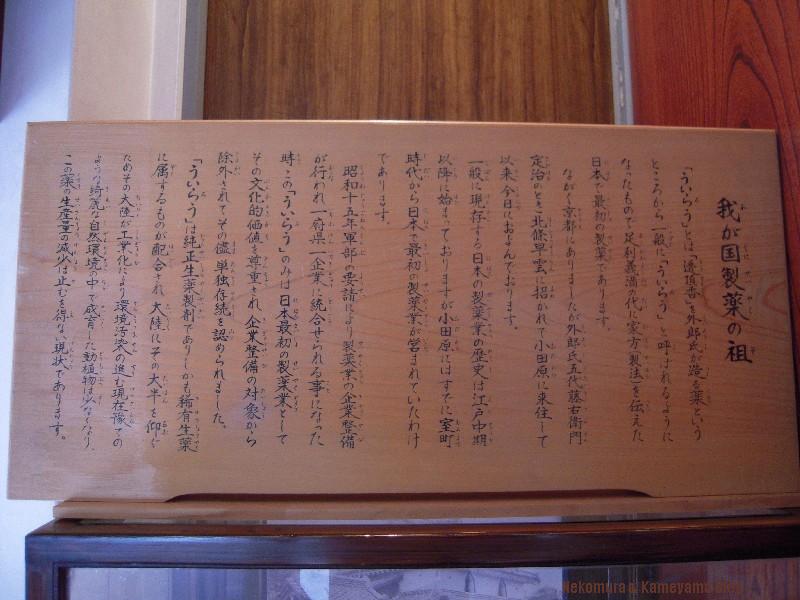 我が国製薬の祖
「ういらう」とは「透頂香」を外郎氏が造る薬という
ところから一般に「ういらう」と呼ばれるように
なったもので足利義満の代に家方(製法)を伝えた
日本で最初の製薬であります。
ながく京都にありましたが外郎氏五代藤右衛門
定治のとき、北條早雲に招かれて小田原に来住して
以来今日におよんでおります。
一般に現存する日本の製薬業の歴史は江戸中期
以降に始まっておりますが小田原にはすでに室町
時代から日本で最初の製薬業が営まれていたわけ
であります。
昭和十五年軍部の要請により製薬業の企業整備
が行われ一府県一企業に統合せられる事になった
時この「ういらう」のみは日本最初の製薬業として
その文化的価値を尊重され企業整備の対象から
除外されてその儘単独存続を認められました。
「ういらう」は純正生薬製剤でありしかも稀有生薬
に属するものが配合され大陸にその大半を仰ぐ
ためその大陸が工業化により環境汚染の進む現在豫ての
ような綺麗な自然環境の中で成育した動植物は少なくなり、
この薬の生産量の減少は止むを得ない現状であります。
Nekomura a Kameyama Blog